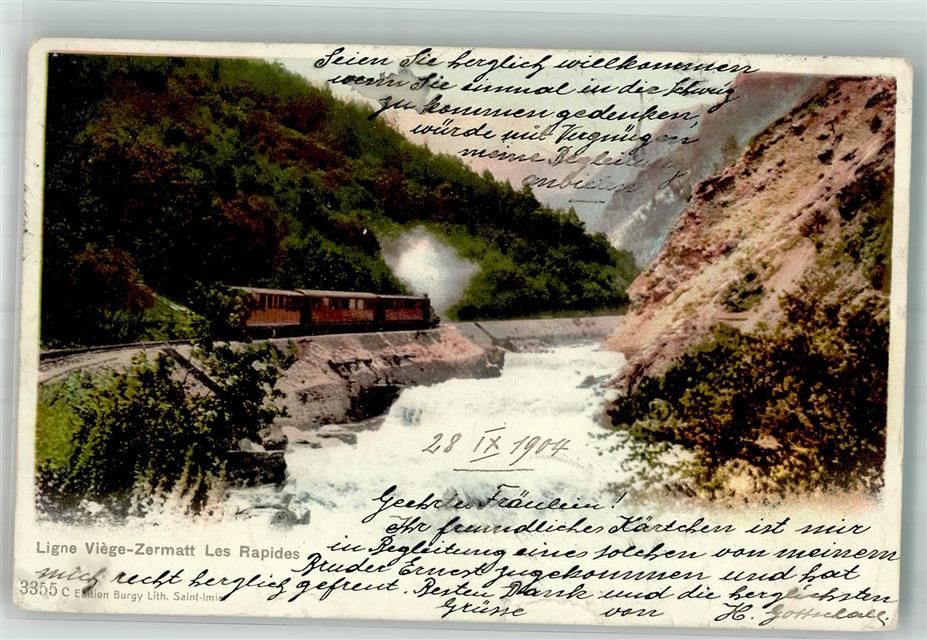 Seien Sie herzlich willkommen
wenn Sie einmal in die Schweiz
zu kommen gedenken
würde mit Vergnügen
meine Begleitung
anbieten
28 IX 1904
Geehrtes Fräulein!
Ihr freundliches Kärtchen ist mir
in Begleitung eines solchen von meinem
Bruder Ernest zugekommen und hat
mich recht herzlich gefreut. Besten Dank und die herzlichsten
Grüsse von H. Gottschall.
Ligne Viège-Zermatt Les Rapides
3355 C Edition Burgy Lith. Saint-Imier